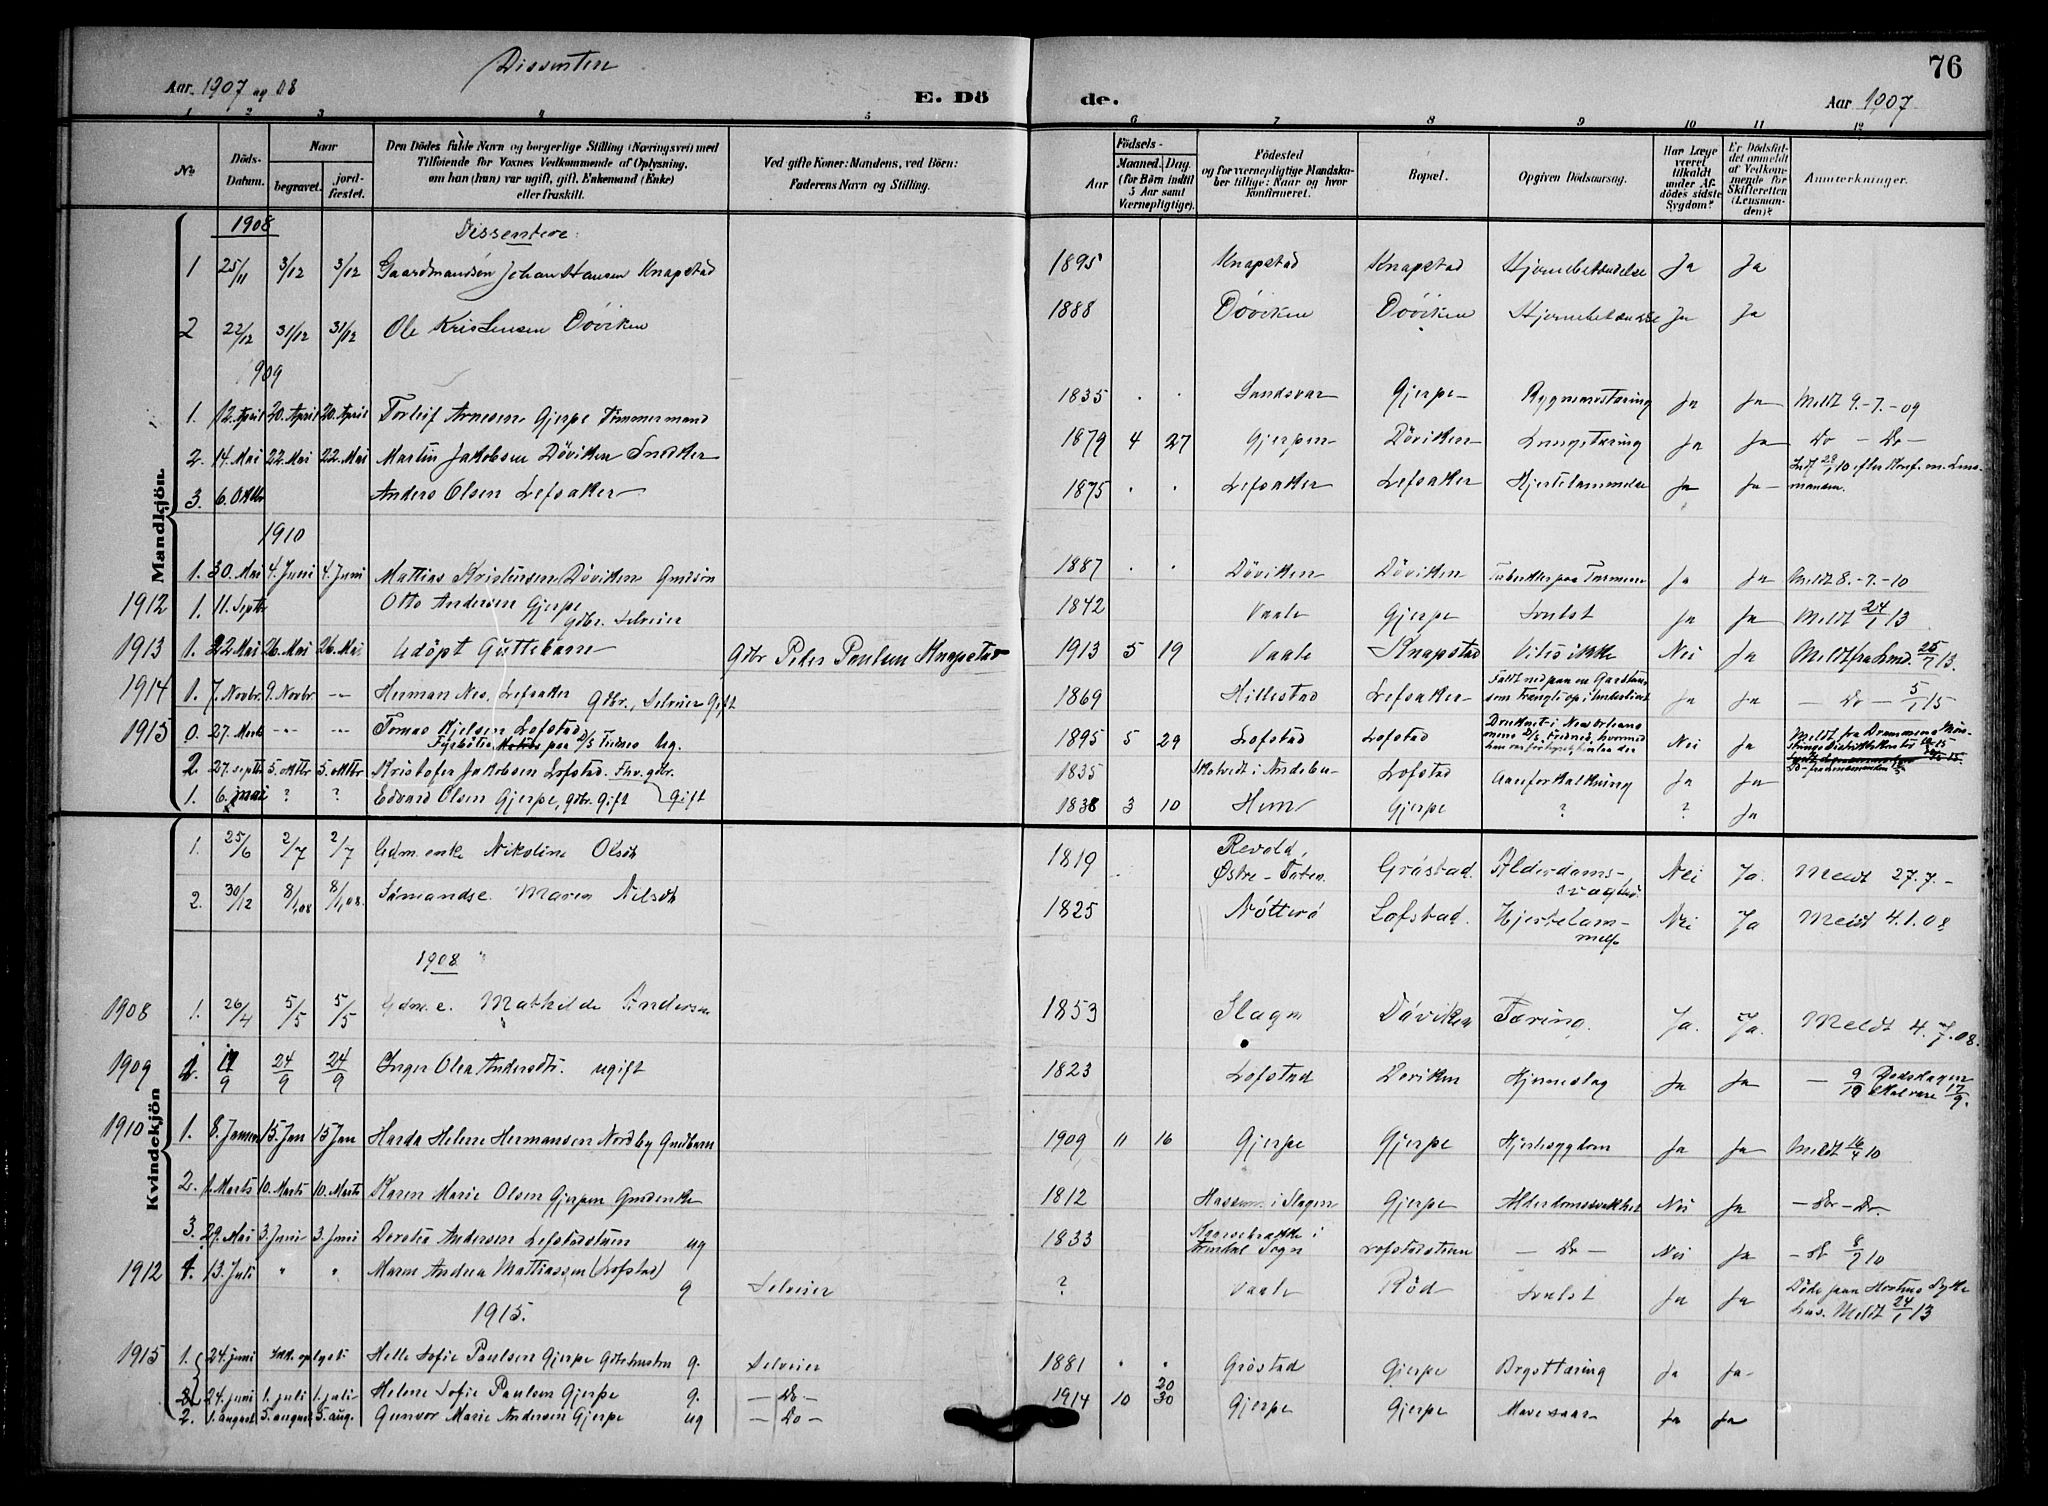 Dissentere
76
Aar 1907 og 08
E. Dö
de.
Aar 1907
1 2 3 4 5 6 7 8 9 10 11 12
No.
Döds-Datum.
Naar
begravet.
jordfæstet.
Den Dödes fulde Navn og borgerlige Stilling (Næringsvei) med
Tilföiende for Voxnes Vedkommende af Oplysning,
om han (hun) var ugift, gift, Enkemand (Enke)
eller fraskilt.
Ved gifte Koner: Mandens, ved Börn:
Faderens Navn og Stilling.
Födsels-
Aar
Maaned. Dag.
(for Börn indtil
5 Aar samt
Værnepligtige).
Födested
og for værnepligtige Mandskaber tillige: Naar og hvor
konfirmeret.
Bopæl.
Opgiven Dödsaarsag.
Har Læge
været
tilkaldt
under Afdödes sidste
Sygdom?
Er Dödsfaldet anmeldt
af Vedkommende for
Skifteretten
(Lensmanden)?
Anmærkninger.
Mandkjön.
1908
Dissentere:
1 25/11 3/12 3/12 Gaardmandsön Johan Hansen Knapstad 1895 Knapstad Knapstad Hjernebetændelse Ja Ja
2 22/12 31/12 31/12 Ole Kristensen Döviken 1888 Döviken Döviken Hjernebetændelse Ja Ja
1909
1. 12. April 20. April 20. April Torleif Arnesen Gjerpe Tömmermand 1835 . . Sandsvær Gjerpe Rygmarvstæring Ja Ja Meldt 9.-7.-09
2. 14. Mai 22. Mai 22. Mai Martin Jakobsen Döviken Snekker 1879 4 27 Gjerpen Döviken Lungetæring Ja Ja Do - Do -
3. 6. Oktbr Anders Olsen Lefsaker 1875 . . Lefsaker Lefsaker Hjertelammelse Ja Ja 10 efter Konf. m. Lensmanden.
1910
1. 30. Mai 4. Juni 4. Juni Mattias Kristensen Döviken Gmdsön 1887 . . Döviken Döviken Tuberkler paa Tarmene Ja Ja Meldt 8.-7.-10
1912 1. 11. Septr Otto Andersen Gjerpe Gdbr. Selveier 1842 Vaale Gjerpe Svulst Ja Ja Meldt 24/1 13
1913 1. 22 Mai 26. Mai 26. Mai Udöpt Guttebarn Gdbr Peter Paulsen Knapstad 1913 5 19 Vaale Knapstad Vites ikke Nei Ja Meldt fra Lmd. 25/7 13.
1914 1. 7. Novbr. 9. Novbr. -- Herman Nes. Lefsaker Gdbr., Selveier Gift 1869 Hillestad Lefsaker Faldt ned paa en Gardstaur som trængte op i Underlivet Ja Ja - Do - 5/1 15
1915 0. 27. Mark -- -- Tomas Kjelsen Lofstad
Fyrböter paa D/S Ug. 1895 5 29 Lofstad Lofstad Druknet i New Orleans Nei Ja Meldt fra Drammens
2 27. septbr 5. oktbr 5. oktbr Kristofer Jakobsen Lofstad. Fhv. gdbr. Gift 1835 Skatvedt i Andebu Lofstad Aareforkalkning Ja Ja
1. 6. mai ? ? Edvard Olsen Gjerpe, Gdbr. Gift 1838 3 10 Hem Gjerpe ? ? Ja
Kvindekjön
1. 25/6 2/7 2/7 Gdm. enke Nikoline Olsdt 1819 Revold, Østre-Toten Gråstad. Alderdomssvaghed. Nei Ja. Meldt 27.7.-
2. 30/12 8/1 08 8/1 08. Sömandse. Maren Nilsdt 1825 Nötterö Lofstad. Hjertelammelse Nei Ja Meldt 4.1.08
1908
1908 1. 26/4 5/5 5/5 Gdm. e. Mathilde Andersen 1853 Slagn Döviken Tæring. Ja. Ja. Meldt 4./7. 08.
1909 1. 17/9 24/9 24/9 Inger Olea Andersdt. ugift 1823 Lofstad Doviken Hjerneslag Ja Ja - 9/10 Dødsdagen skal være 17/9.
1910 1. 8. Januar 15. Jan 15 Jan Harda Helene Hermansen Nordby Gmdbarn 1909 11 16 Gjerpe Gjerpe Hjertesygdom Ja Ja Meldt 16/4 10
2. 1. Marts 10. Marts 10. Marts Karen Marie Olsen Gjerpen Gmdenke 1812 Hassum i Slagen Gjerpe Alderdomssvækket Nei Ja - Do - Do.
3. 29. Mai 3. Juni 3. Juni Dorotea Andersen Lefstadstuen ug 1833 i Arendal Sogn Lofstadstuen - Do - Nei Ja - Do 8/7 10
1912 1. 13. Juli " " Maren Andrea Mattiassen (Lofstad) g Selveier ? Vaale Röd Svulst Ja Ja Döde paa Hortens Sykehus. Meldt 24/1 13
1915.
1915 1. 24. juni Ikke oplyst Helle Sofie Paulsen Gjerpe Gdbrhustru g. Selveier 1881 " " Gröstad Gjerpe Brysttæring Ja Ja
24. juni 1. juli 1. juli Helene Sofie Paulsen Gjerpe g. - Do - 20
2. 1. august 5. august 5. aug. Gunvor Marie Andersen Gjerpe ug - Do - 1914 10 30 Gjerpe Gjerpe Mavesaar Ja Ja